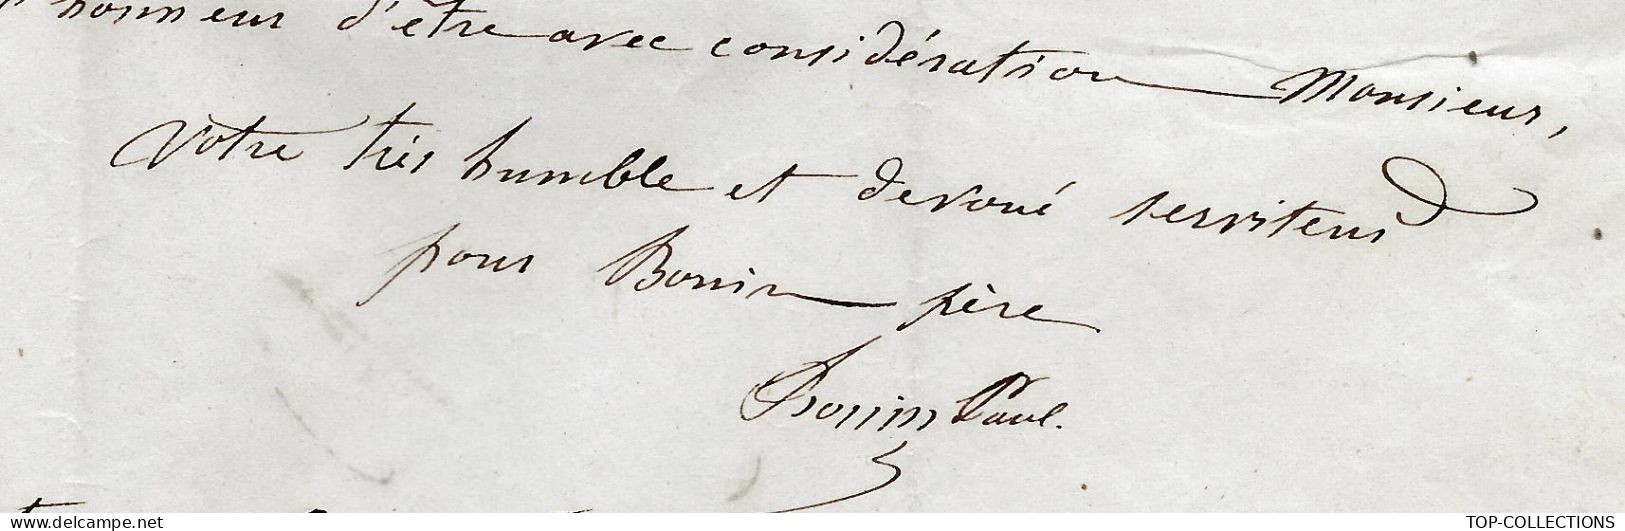 honneur d'être avec considération Monsieur,
Votre très humble et devoué serviteur
pour Bonin père
Bonin Paul.
www.delcampe.net
TOP-COLLECTIONS